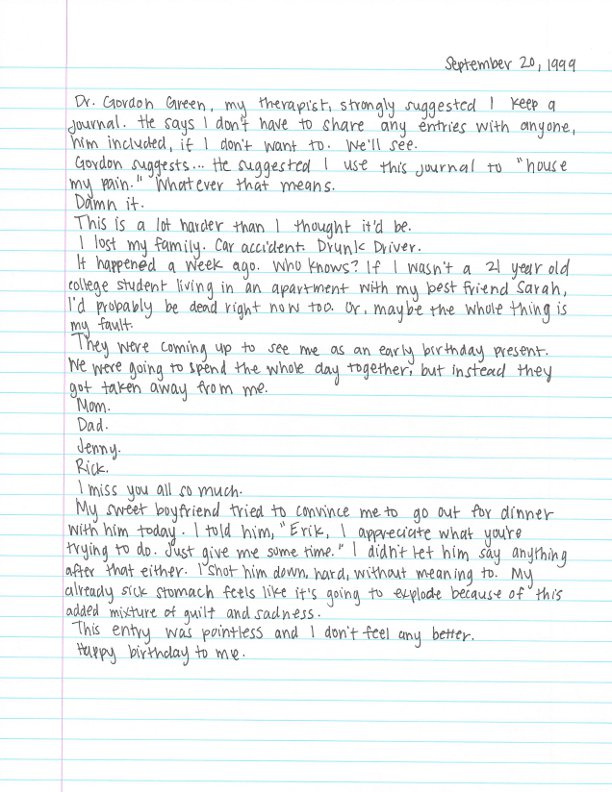 September 20, 1999
Dr. Gordon Green, my therapist, strongly suggested I keep a
journal. He says I don't have to share any entries with anyone,
him included, if I don't want to. We'll see.
Gordon suggests... He suggested I use this journal to "house
my pain." Whatever that means.
Damn it.
This is a lot harder than I thought it'd be.
I lost my family. Car accident. Drunk Driver.
It happened a week ago. Who knows? If I wasn't a 21 year old
college student living in an apartment with my best friend Sarah,
I'd probably be dead right now too. Or, maybe the whole thing is
my fault.
They were coming up to see me as an early birthday present.
We were going to spend the whole day together, but instead they
got taken away from me.
Mom.
Dad.
Jenny.
Rick.
I miss you all so much.
My sweet boyfriend tried to convince me to go out for dinner
with him today. I told him, "Erik, I appreciate what you're
trying to do. Just give me some time." I didn't let him say anything
after that either. I shot him down, hard, without meaning to. My
already sick stomach feels like it's going to explode because of this
added mixture of guilt and sadness.
This entry was pointless and I don't feel any better.
Happy birthday to me.